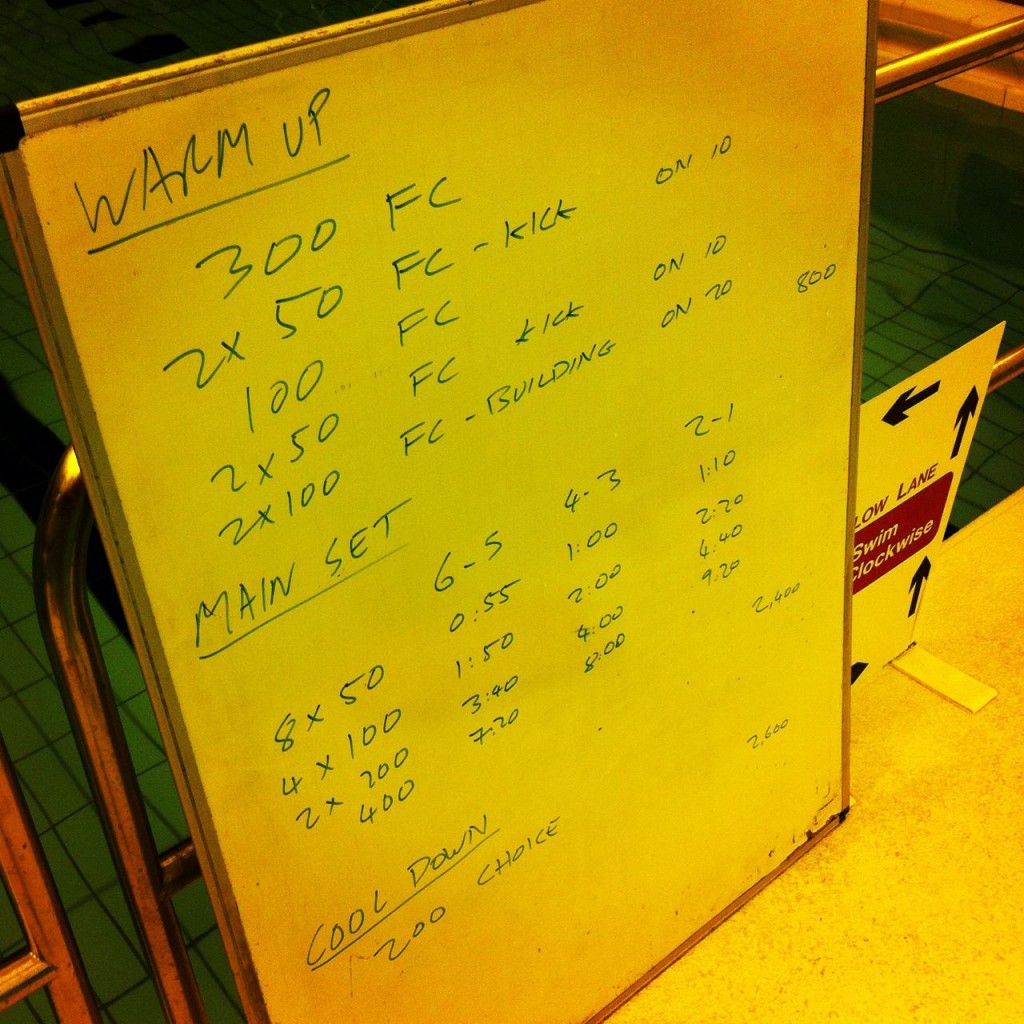 WARM UP
300 FC
2 x 50 FC - KICK ON 10
100 FC
2 x 50 FC KICK ON 10
2 x 100 FC - BUILDING ON 20 800
MAIN SET 6-5 4-3 2-1
8 x 50 0:55 1:00 1:10
4 x 100 1:50 2:00 2:20
2 x 200 3:40 4:00 4:40
400 7:20 8:00 9:20
2,400
COOL DOWN
200 CHOICE 2,600
LOW LANE
Swim
Clockwise